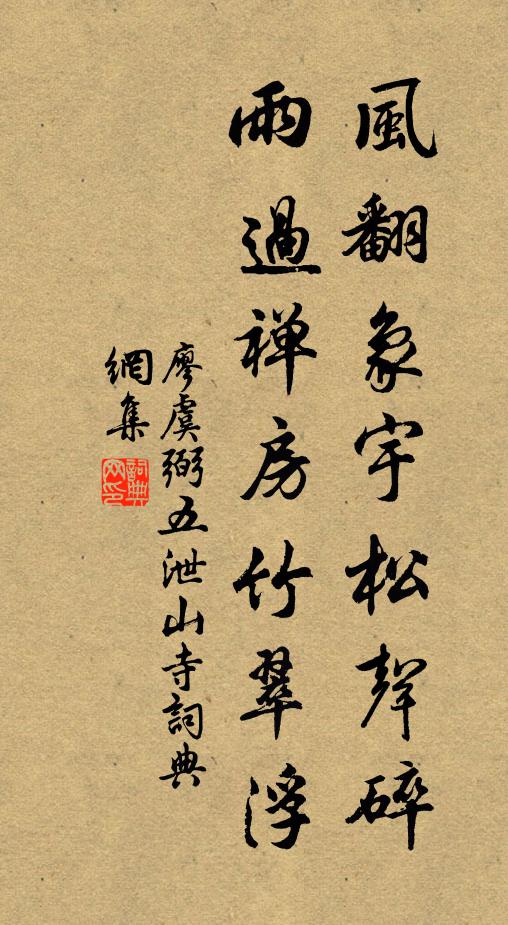 風翻象宇松聲碎
雨過禅房竹翠浮
廖虞弼五泄山寺詞典
網集
詞典
网印